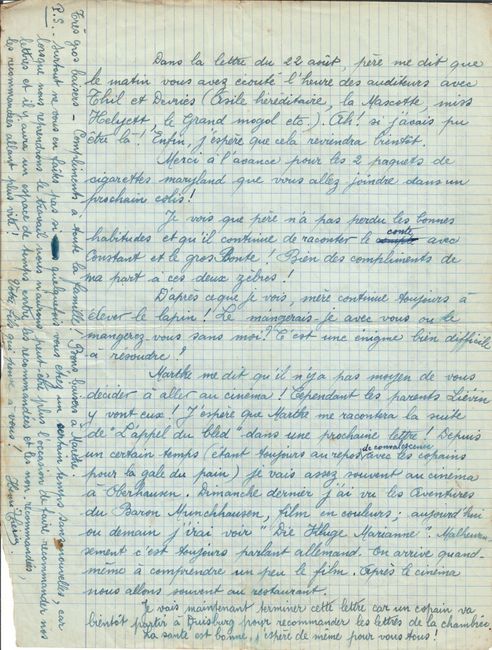 Dans la lettre du 22 août, père me dit que
le matin vous avez écouté l'heure des auditeurs avec
Thil et Devriès (Asile héréditaire, la Mascotte, miss
Helyett, le Grand mogol etc.). Ah! si j'avais pu
être là! Enfin, j'espère que cela reviendra bientôt.
Merci à l'avance pour les 2 paquets de
cigarettes maryland que vous allez joindre dans un
prochain colis!
Je vois que père n'a pas perdu les bonnes
habitudes et qu'il continue de raconter le conte avec
Constant et le gros Conte! Bien des compliments de
ma part à ces deux zèbres!
D'après ce que je vois, mère continue toujours à
élever le lapin! Le mangerais-je avec vous ou le
mangerez-vous sans moi? C'est une énigme bien difficile
à résoudre!
Marthe me dit qu'il n'y a pas moyen de vous
décider à aller au cinéma! Cependant les parents Liévin
y vont eux! J'espère que Marthe me racontera la suite
de "L'appel du bled" dans une prochaine lettre! Depuis
un certain temps (étant toujours au repos de convalescence avec les copains
pour la gale du pain) je vais assez souvent au cinéma
à Oberhausen. Dimanche dernier j'ai vu les Aventures
du Baron Munchhausen, film en couleurs; aujourd'hui
ou demain j'irai voir "Die Kluge Marianne". Malheureu-
sement c'est toujours parlant allemand. On arrive quand-
même à comprendre un peu le film. Après le cinéma
nous allons souvent au restaurant.
Je vais maintenant terminer cette lettre car un copain va
bientôt partir à Duisburg pour recommander les lettres de la chambrée.
La santé est bonne, j'espère de même pour vous tous!
Très gros baisers - Compliments à toute la famille! Bons baisers à Marthe.
P.S. - Surtout ne vous en faites pas si quelquefois vous êtes un certain temps sans nouvelles, car
lorsque nous reprendrons le travail nous n'aurons peut-être plus l'occasion de faire recommander nos
lettres et il y aura un espace de temps entre les recommandées et les non recommandées,
les recommandées allant plus vite! Votre fils qui pense à vous!